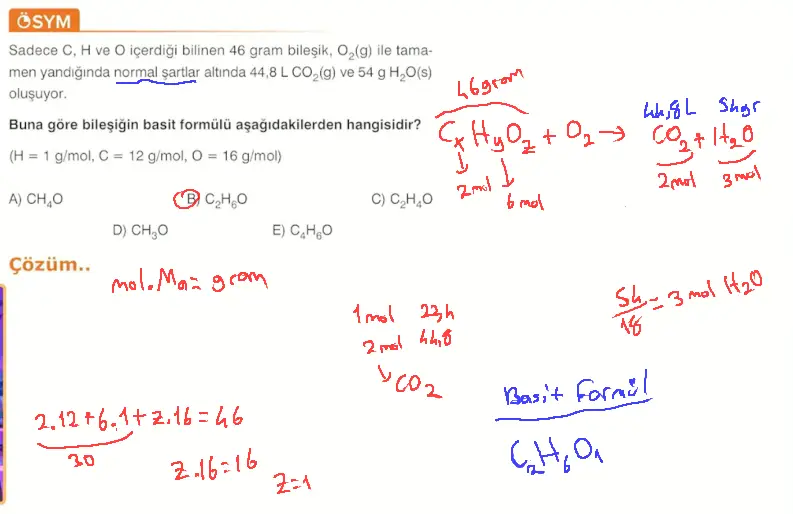 ÖSYM
Sadece C, H ve O içerdiği bilinen 46 gram bileşik, O₂(g) ile tama-
men yandığında normal şartlar altında 44,8 L CO₂(g) ve 54 g H₂O(s)
oluşuyor.
Buna göre bileşiğin basit formülü aşağıdakilerden hangisidir?
(H = 1 g/mol, C = 12 g/mol, O = 16 g/mol)
A) CH₄O
B) C₂H₆O
C) C₂H₄O
D) CH₃O
E) C₄H₆O
46gram
44,8L 54gr
CₓHᵧO_z + O₂ → CO₂ + H₂O
2mol 6 mol
2mol 3 mol
Çözüm..
mol.Ma = gram
1 mol 22,4
2 mol 44,8
CO₂
54/18 = 3 mol H₂O
2.12+6.1+z.16=46
30
z.16=16
z=1
Basit Formül
C₂H₆O₁